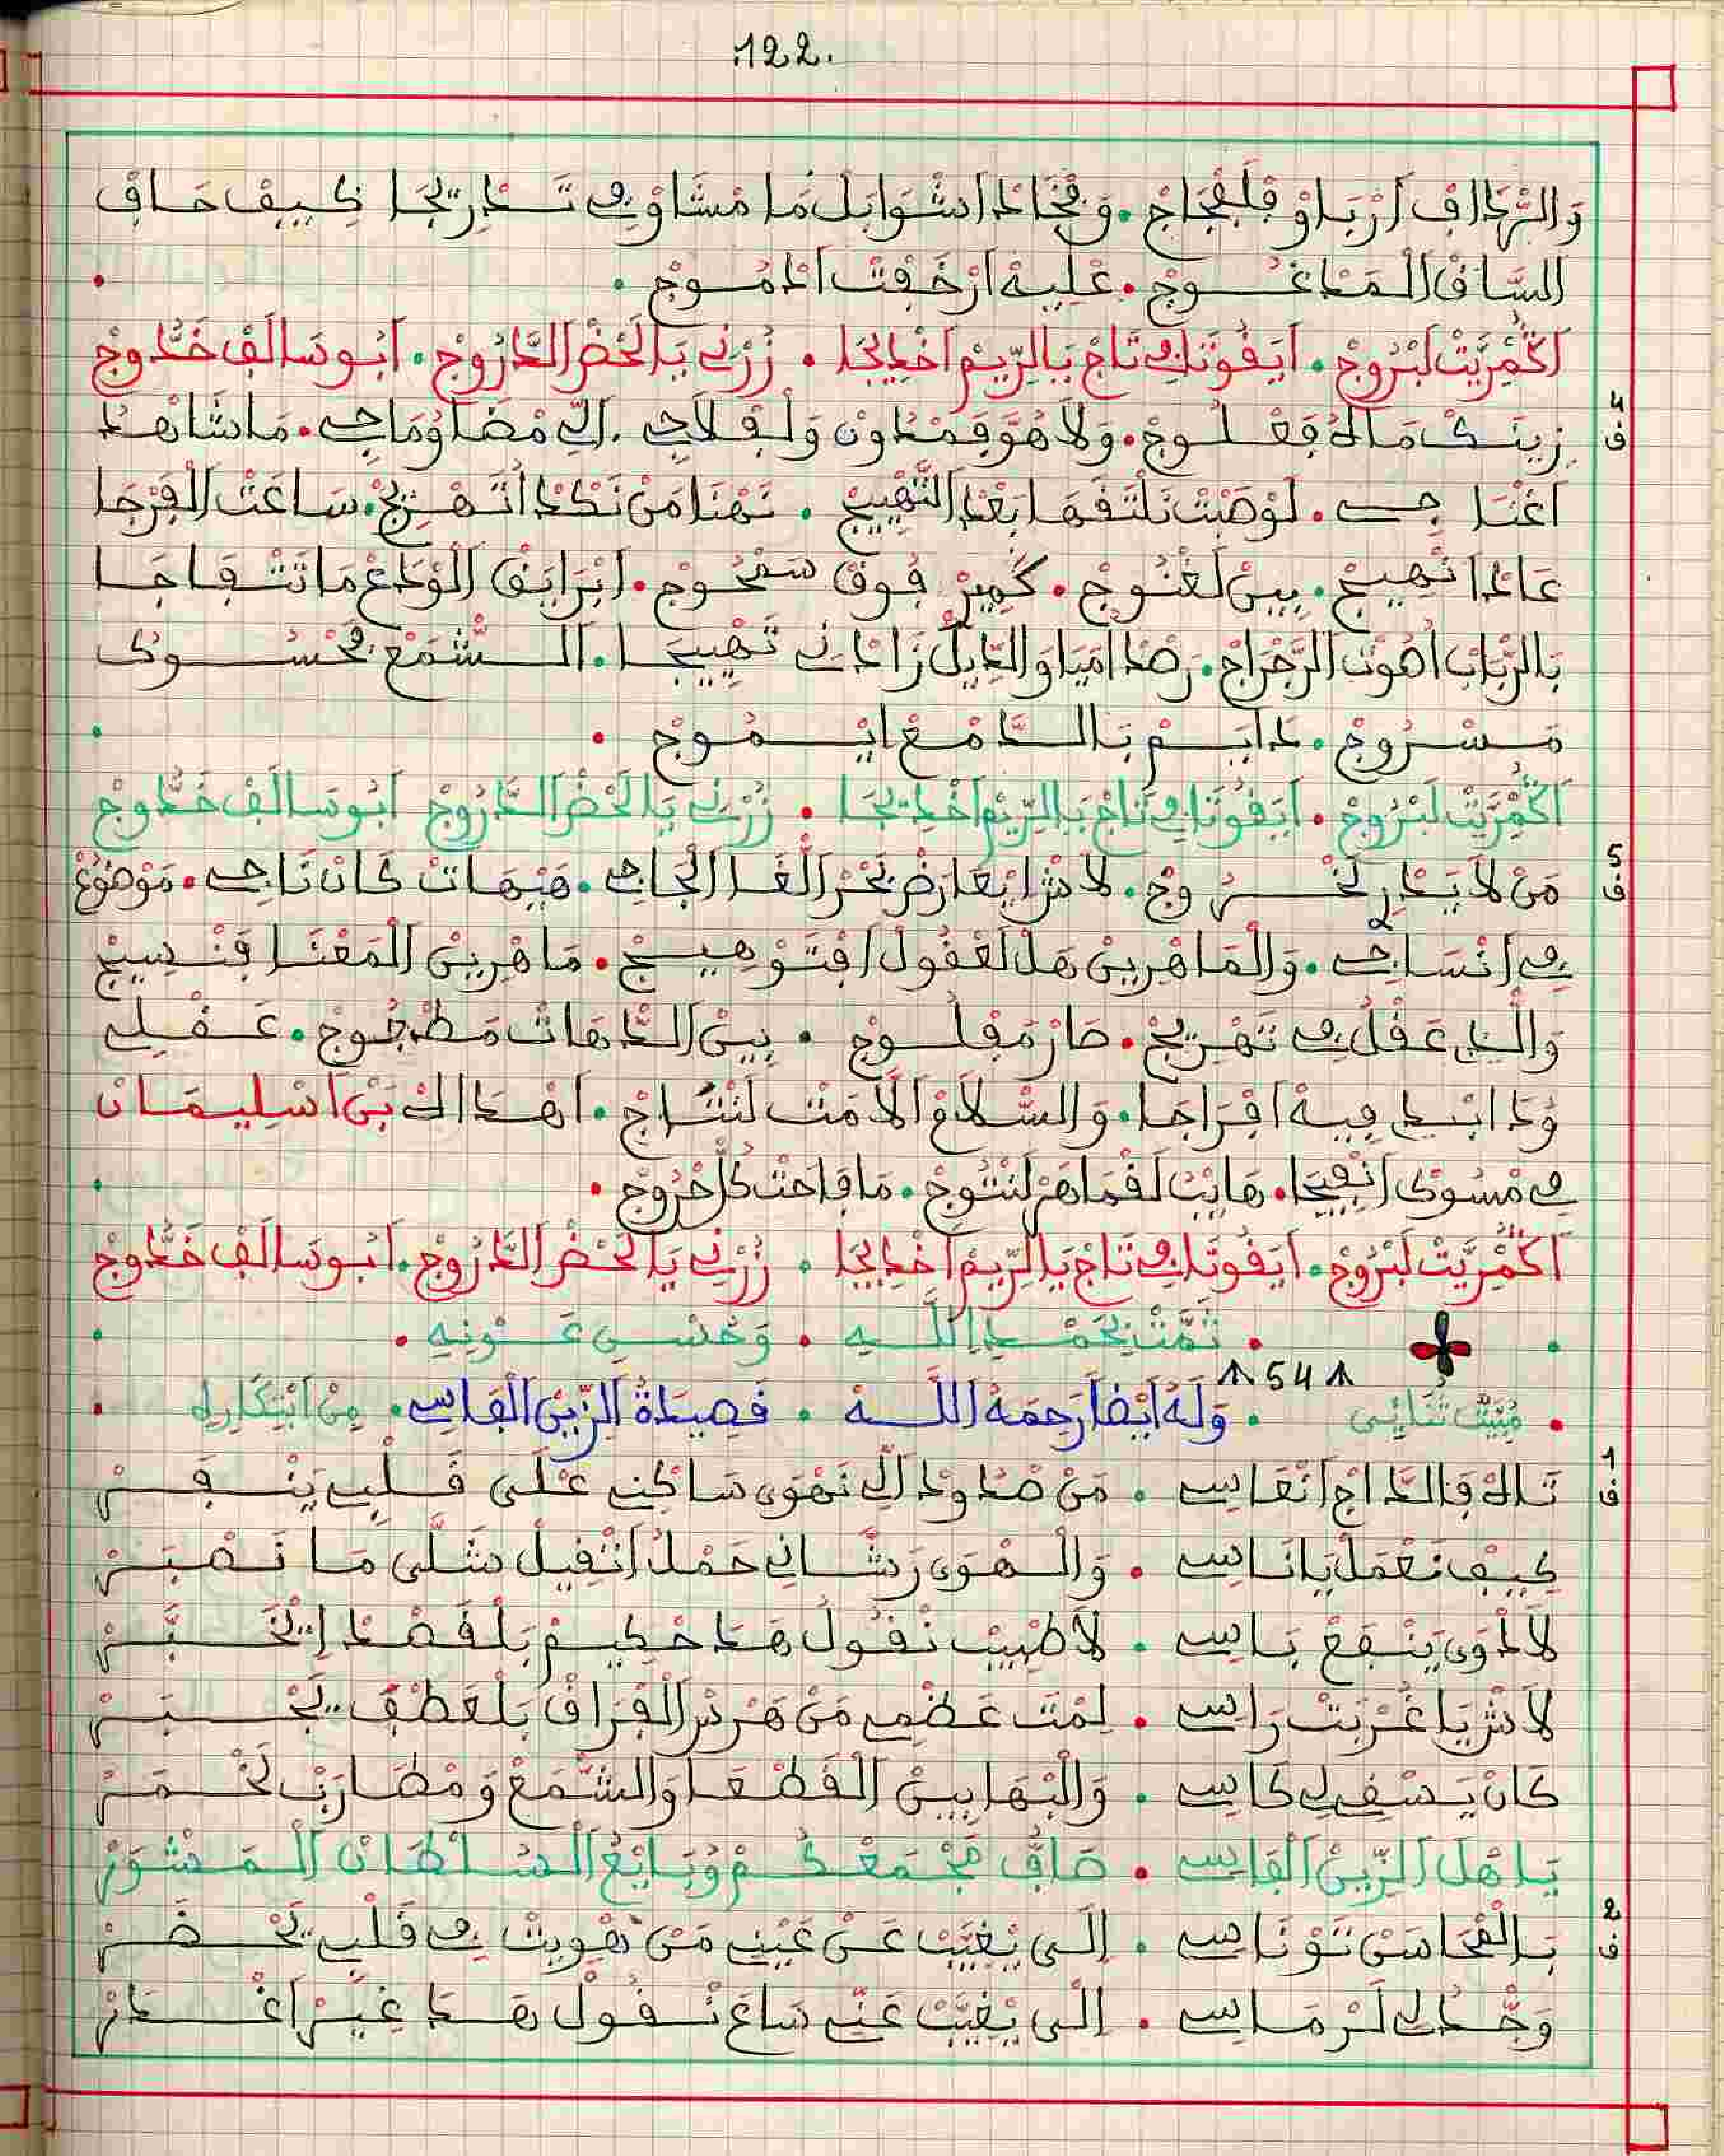 .122.
وَالرّْدَافْ اَرْبَاوْ فَلَفْجَاجْ . وَفْخَادْ اَشْوَابَلْ مَا مْشَاوْ فِي تَدْرِيجَا كِيفْ حَافْ
السَّاقْ الْمَدْغُوجْ . عْلِيهْ اَرْخَفْتْ اَدْمُوجْ .
اَكُمْرِيَّتْ لَبْرُوجْ . اَيَفُوتَكْ فِي تَاجْ يَا الرِّيمْ اَخْدِيجَا . زُرْنِي يَا لَحْضْ الدَّرُّوجْ . اَبُو سَالَفْ خَدُّوجْ
4
ف
زِينَكْ مَالُه فَعْلُوجْ . وَلَا هُوَ فَمْدُونْ وَلَفْلَاجِي . اللِّي مْضَاوْ مَاجِي . مَا شَاهْدْ
اَعْنَاجِي . لَوْصَبْتْ نَلْتَقَهَا بَعْدْ التَّهْيِيجْ . نَهْنَا مَنْ نَكْدْ اَتَّهْرِيجْ . سَاعَتْ الْفَرْجَا
عَادْ اَنْهِيجْ . بِينْ لَغْنُوجْ . كَمِيرْ فُوقْ سَمْحُوجْ . اَبْرَايَقْ الْوَدَعْ مَا تَتْفَاجَا
بَالرّْبَابْ اَصُوتْ الرَّجْرَاجْ . رَصْدْ اَمَيَا وَالدِّيلْ زَادْنِي تَهْيِيجَا . الشَّمْعْ فْحُسُوكْ
مَسْرُوجْ . دَايَمْ بَالدَّمْعْ اِيْمُوجْ .
اَكُمْرِيَّتْ لَبْرُوجْ . اَيَفُوتَكْ فِي تَاجْ يَا الرِّيمْ اَخْدِيجَا . زُرْنِي يَا لَحْضْ الدَّرُّوجْ اَبُو سَالَفْ خَدُّوجْ
5
ف
مَنْ لَا يَدْرِ لَخْرُوجْ . لَاشْ اِيْعَارَضْ بَحْرْ الْغَا الْجَاجِي . هَيْهَاتْ كَانْ نَاجِي . مَوْضُوعْ
فِي اَنْسَاجِي . وَالْمَاهْرِينْ هَلْ لَعْقُولْ اَفْتَوْهِيجْ . مَاهْرِينْ الْمَعْنَا فَنْسِيجْ
وَاللِّي عَقْلُ فِي تَهْرِيجْ . صَارْ مَفْلُوجْ . بِينْ الدَّهَاتْ مَطْجُوجْ . عَقْلِي
وَدْ اَبْدِي فِيهْ اَفْرَاجَا . وَالسَّلَامْ اَلَامَتْ لَنْتَاجْ . اَهْدَاكْ بَنْ اَسْلِيمَانْ
فِي مْسُوكْ اَنْفِيجَا . هَايَبْ لَقْمَاهَرْ لَنْتُوجْ . مَا فَاحَتْ كُلّْ حْرُوجْ .
اَكُمْرِيَّتْ لَبْرُوجْ . اَيَفُوتَكْ فِي تَاجْ يَا الرِّيمْ اَخْدِيجَا . زُرْنِي يَا لَحْضْ الدَّرُّوجْ . اَبُو سَالَفْ خَدُّوجْ
. تَمَّتْ بِحَمْدِ اللَّهِ . وَحُسْنِ عَوْنِهِ .
54
. مُبَيَّتْ ثُنَائِي . وَلَهُ أَيْضاً رَحِمَهُ اللَّه . قَصِيدَةُ الزِّينْ الْفَاسِي . مِنْ اَبْتِكَارِهِ .
1
ف
تَاهْ فَالدَّاجْ اَنْعَاسِي . مَنْ صْدُودْ اللِّي نَهْوَى سَاكَنْ عْلَى قَلْبِي يَنْقَرْ
كِيفْ نَعْمَلْ يَا نَاسِي . وَالْهْوَى رَشَّانِي حَمْلُ اَتْقِيلْ شَلَّى مَا نَصْبَرْ
لَا دْوَى يَنْفَعْ بَاسِي . لَا طْبِيبْ نْقُولْ هَدَا حْكِيمْ بَلْقَصْدْ اِيْخَبَّرْ
لَاشْ يَا غُرْبَتْ رَاسِي . لِمْتَ عَضْمِي مَنْ هَرْسْ الْفْرَاقْ بَلْعَطْفْ يَجْبَرْ
كَانْ يَسْقِي لِي كَاسِي . وَالْبْهَا بِينْ الْقَطْعَا وَالشَّمْعْ وَمْضَارَبْ لَخْمَرْ
يَا هْلَ الزِّينْ الْفَاسِي . صَافِي مَجْمَعْكُمْ وُبَايْعُ السَّلْطَانْ الْمَشْوَرْ
2
ف
بَالْمْحَاسَنْ تَوْنَاسِي . اِلَى يْغِيَّبْ عَنْ عَيْنِي مَنْ هْوِيتْ فِي قَلْبِي يَحْضَرْ
وَحْدُ لِي لَرْمَاسِي . اِلَى يْغِيَّبْ عَنِّي سَاعْ نْقُولْ هَدَا غِيرْ اَغْدَرْ